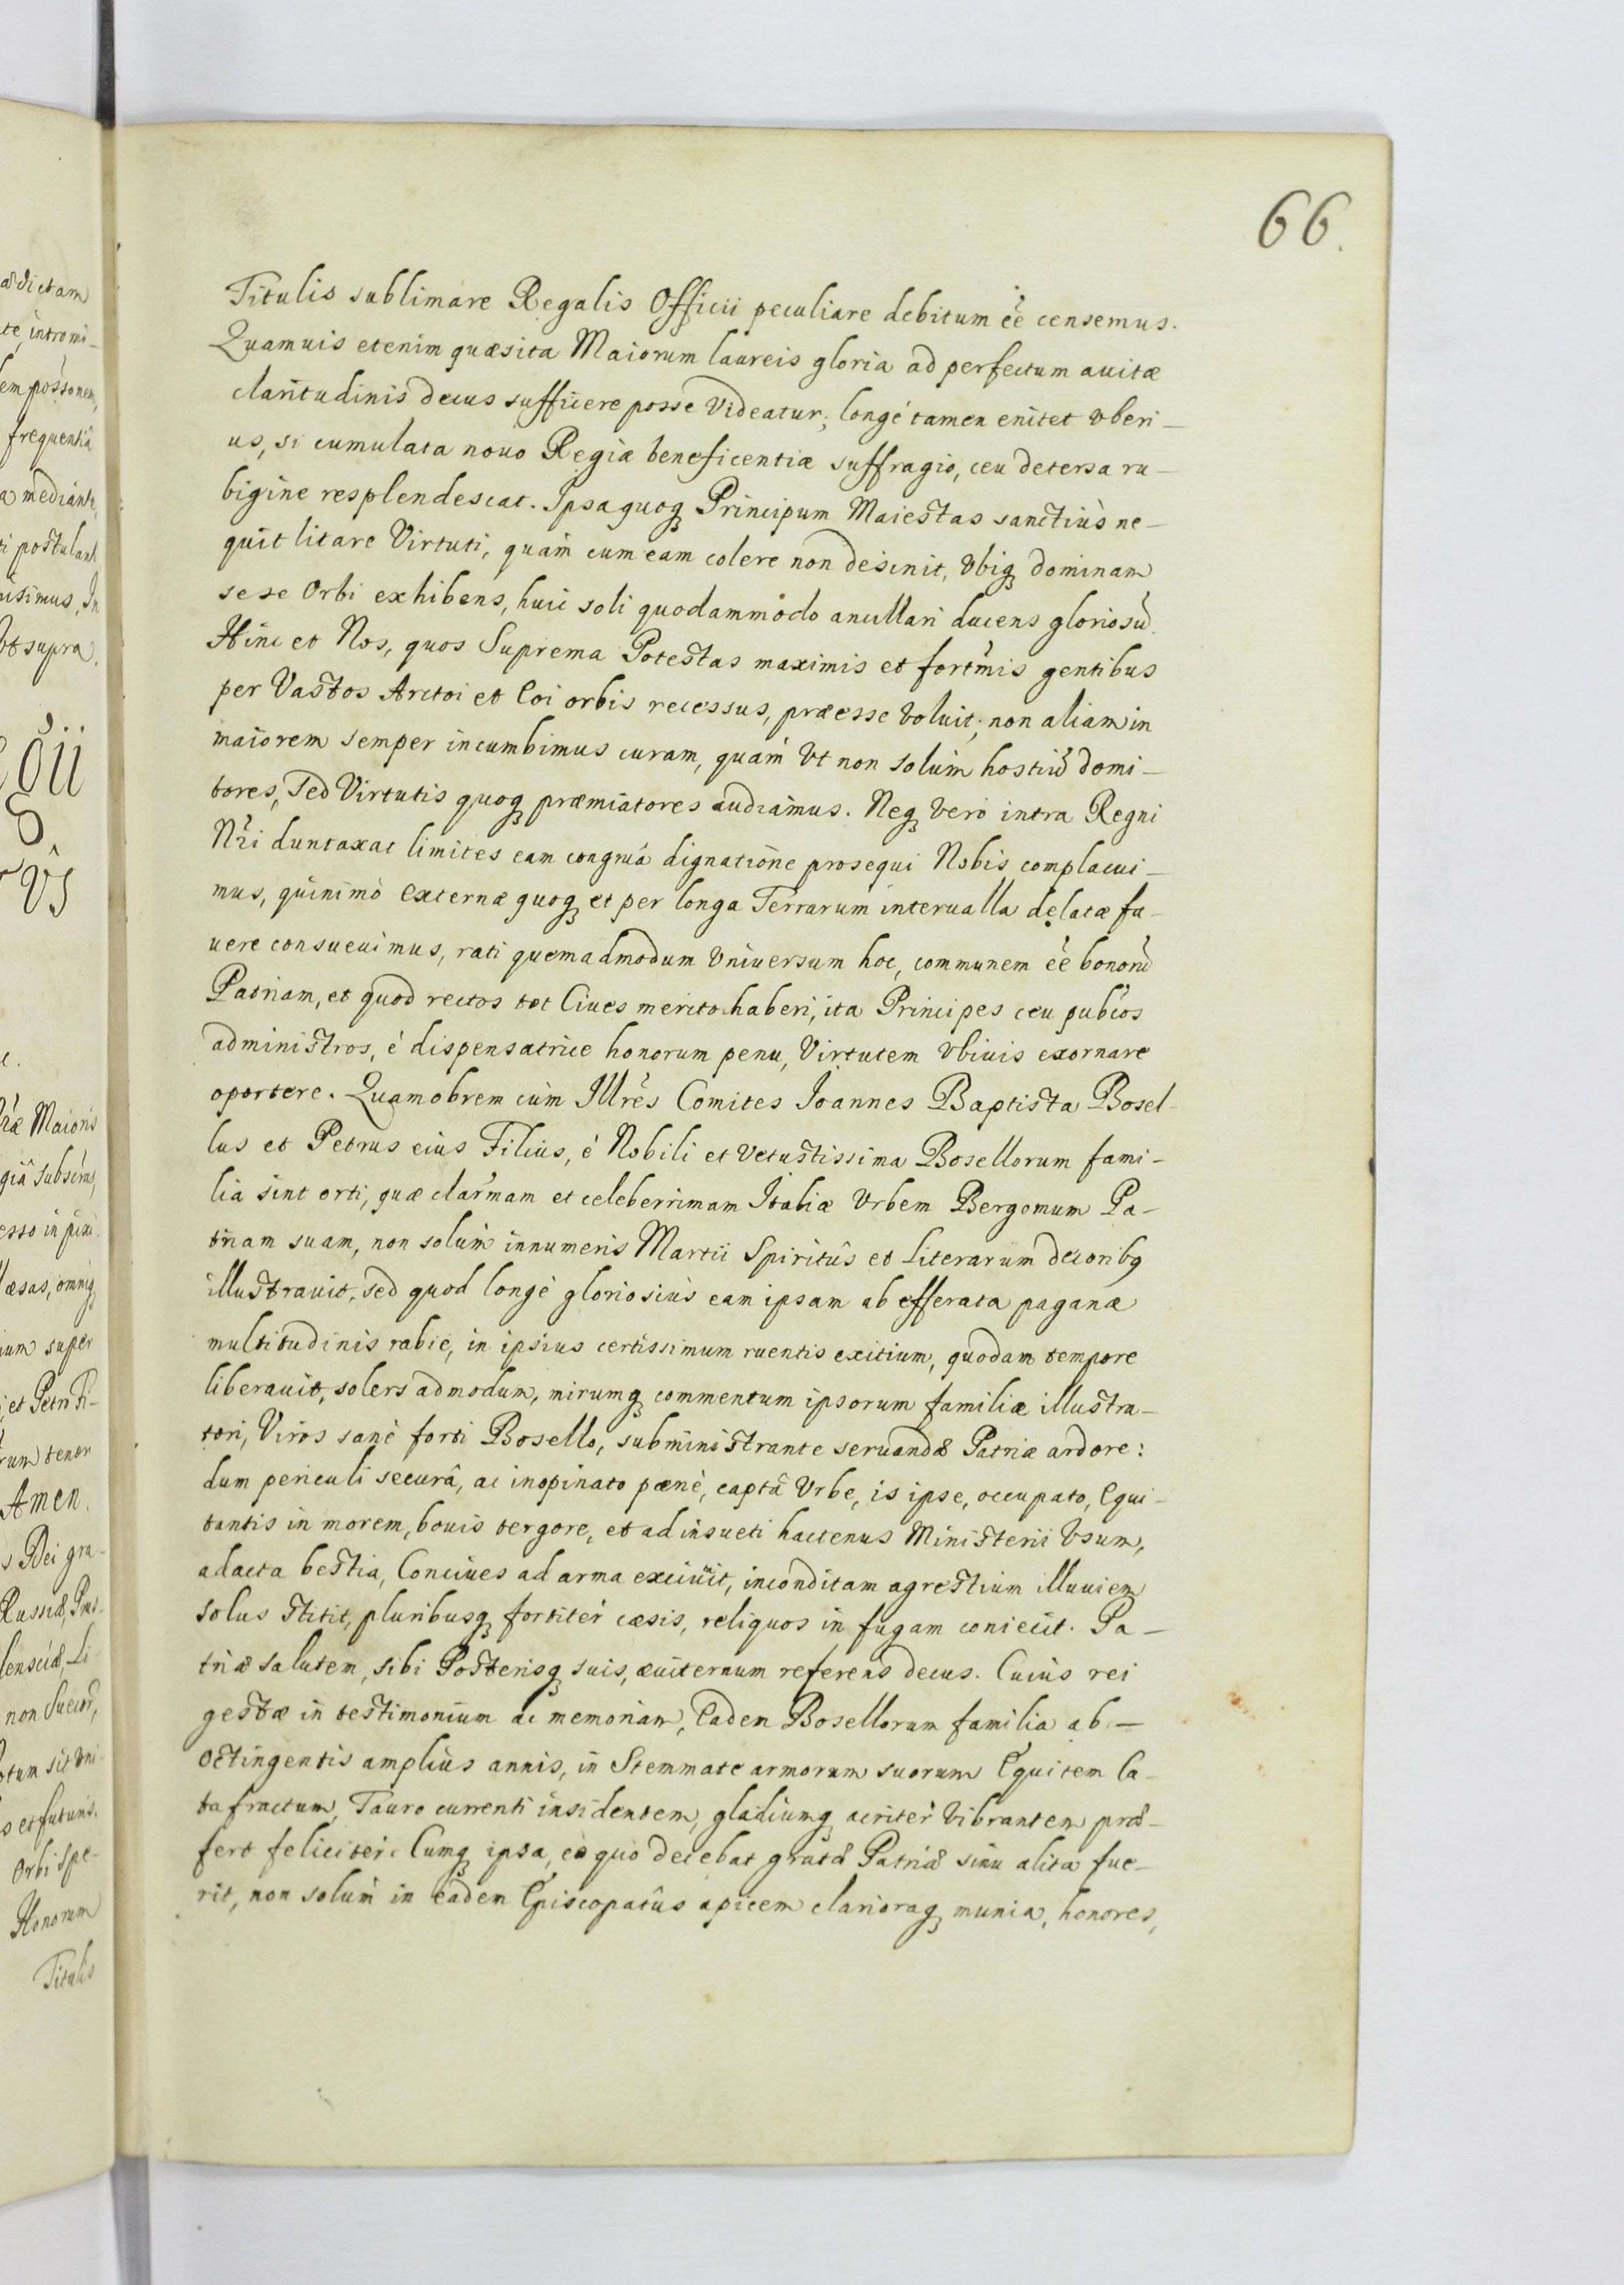 66.
Titulis sublimare Regalis Officii peculiare debitum èe censemus.
Quamuis etenim quæsita Maiorum laureis gloria ad perfectum auitæ
claritudinis decus sufficere posse Videatur; longè tamen enitet vberi-
us, si cumulata nouo Regiæ beneficentiæ suffragio, ceu detersa ru-
bigine resplendescat. Ipsa quoq; Principum Maiestas sanctiùs ne-
quit litare Virtuti, quàm cum eam colere non desinit, vbiq; dominam
sese Orbi exhibens, huic soli quodammodo ancillari ducens gloriosũ.
Hinc et Nos, quos Suprema Potestas maximis et fortmis gentibus
per Vastos Arctoi et Eoi orbis recessus, præesse voluit; non aliam in
maiorem semper incumbimus curam, quàm Vt non solùm hostiũ domi-
tores, sed Virtutis quoq; præmiatores audiamus. Neq; verò intra Regni
Nri duntaxat limites eam congruâ dignatione prosequi Nobis complacui-
mus, quinimò externæ quoq; et per longa Terrarum interualla delatæ fa-
uere consueuimus, rati quemadmodum Vniuersum hoc, communem èe bonorũ
Patriam, et quod rectos tot Ciues merito haberi, ita Principes ceu pubcos
administros, è dispensatrice honorum penu, Virtutem vbiuis exornare
oportere. Quamobrem cùm Illres Comites Ioannes Baptista Bosel-
lus et Petrus eius Filius, è Nobili et vetustissima Bosellorum fami-
lia sint orti, quæ clarmam et celeberrimam Italiæ Vrbem Bergomum Pa-
triam suam, non solùm innumeris Martii Spiritûs et Literarum decoribq
illustrauit, sed quod longè gloriosiùs eam ipsam ab efferata paganæ
multitudinis rabie, in ipsius certissimum ruentis exitium, quodam tempore
liberauit, solers admodum, mirumq; commentum ipsorum familiæ illustra-
tori, Viros sanè forti Bosello, subministrante seruandæ Patriæ ardore:
dum periculi securâ, ac inopinato pænè, captâ Vrbe, is ipse, occupato, Equi-
tantis in morem, bouis tergore, et ad insueti hactenus Ministerii Vsum,
adacta bestia, Conciues ad arma exciuit, inconditam agrestium illuuiem
solus stitit, pluribusq; fortitèr cæsis, reliquos in fugam coniecit. Pa-
triæ salutem, sibi Posterisq; suis, æuiternum referens decus. Cuius rei
gestæ in testimonium ac memoriam, Eadem Bosellorum familia ab-
octingentis ampliùs annis, in Stemmate armorum suorum Equitem Ca-
tafractum, Tauro currenti insidentem, gladiumq; acritèr vibrantem præ-
fert felicitèr. Cumq; ipsa, eo quo decebat gratæ Patriæ sinu alita fue-
rit, non solùm in eadem Episcopatûs apicem clarioraq; munia, honores,